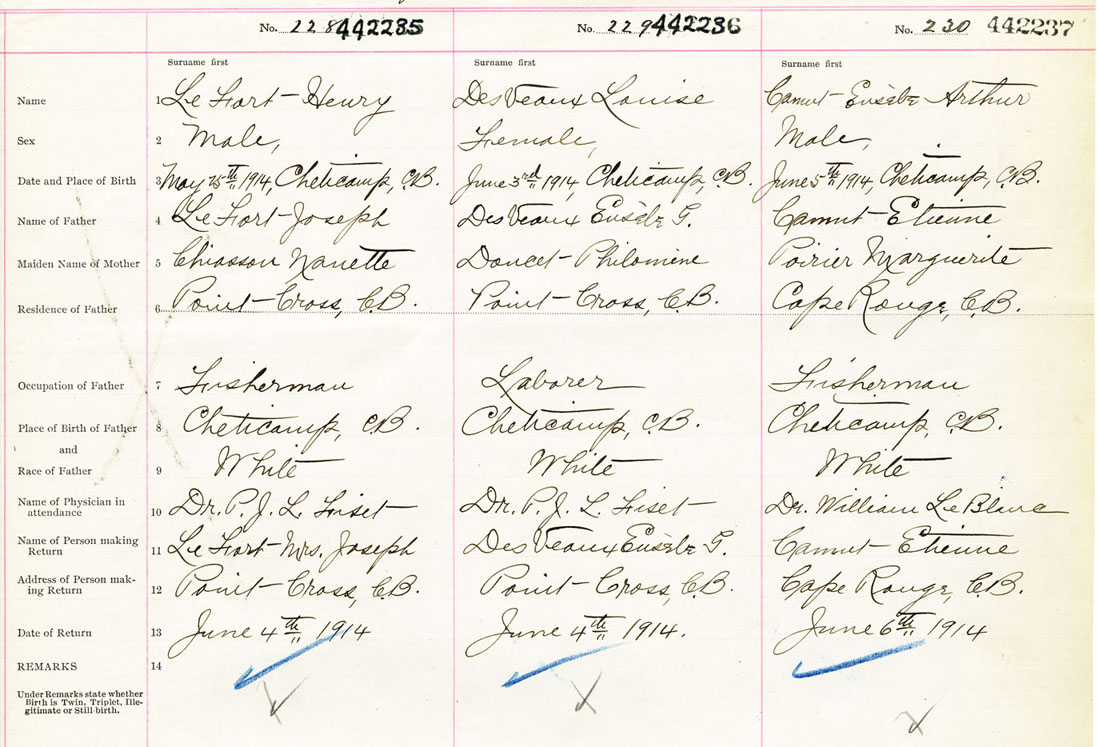 No. 228 442235 No. 229 442236 No. 230 442237
Surname first Surname first Surname first
Name 1 Le Fort-Henry DesVeaux Louise Camut-Eusèbe Arthur
Sex 2 Male, Female, Male,
Date and Place of Birth 3 May 25th 1914, Cheticamp, C.B. June 3rd 1914, Cheticamp, C.B. June 5th 1914, Cheticamp, C.B.
Name of Father 4 Le Fort-Joseph DesVeaux Eusèbe G. Camut-Etienne
Maiden Name of Mother 5 Chiasson Nanette Doucet-Philomene Poirier Marguerite
Residence of Father 6 Point-Cross, C.B. Point-Cross, C.B. Cape Rouge, C.B.
Occupation of Father 7 Fisherman Laborer Fisherman
Place of Birth of Father 8 Cheticamp, C.B. Cheticamp, C.B. Cheticamp, C.B.
and
Race of Father 9 White White White
Name of Physician in
attendance 10 Dr. P. J. L. Fiset Dr. P. J. L. Fiset Dr. William LeBlanc
Name of Person making
Return 11 Le Fort-Mrs. Joseph DesVeaux Eusèbe G. Camut-Etienne
Address of Person mak-
ing Return 12 Point-Cross, C.B. Point-Cross, C.B. Cape Rouge, C.B.
Date of Return 13 June 4th 1914 June 4th 1914. June 6th 1914
REMARKS 14
Under Remarks state whether
Birth is Twin, Triplet, Ille-
gitimate or Still-birth.